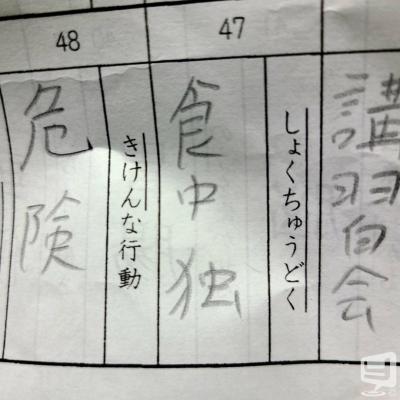 講習会
47
しょくちゅうどく
食中独
48
きけんな行動
危険